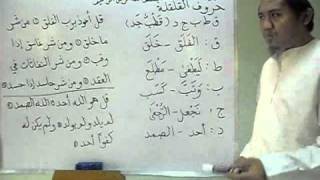 حروف القلقلة
ق ط ب ج د (قطب جد)
ق: الفلق - خلق
ط: يطغى - مطلع
ب: وتب - كسب
ج: نجعل - الرجعى
د: أحد - الصمد
قل أعوذ برب الفلق من شر
ما خلق ومن شر غاسق إذا
وقب ومن شر النفاثات في
العقد ومن شر حاسد إذا حسد
قل هو الله أحد الله الصمد
لم يلد ولم يولد ولم يكن له
كفوا أحد